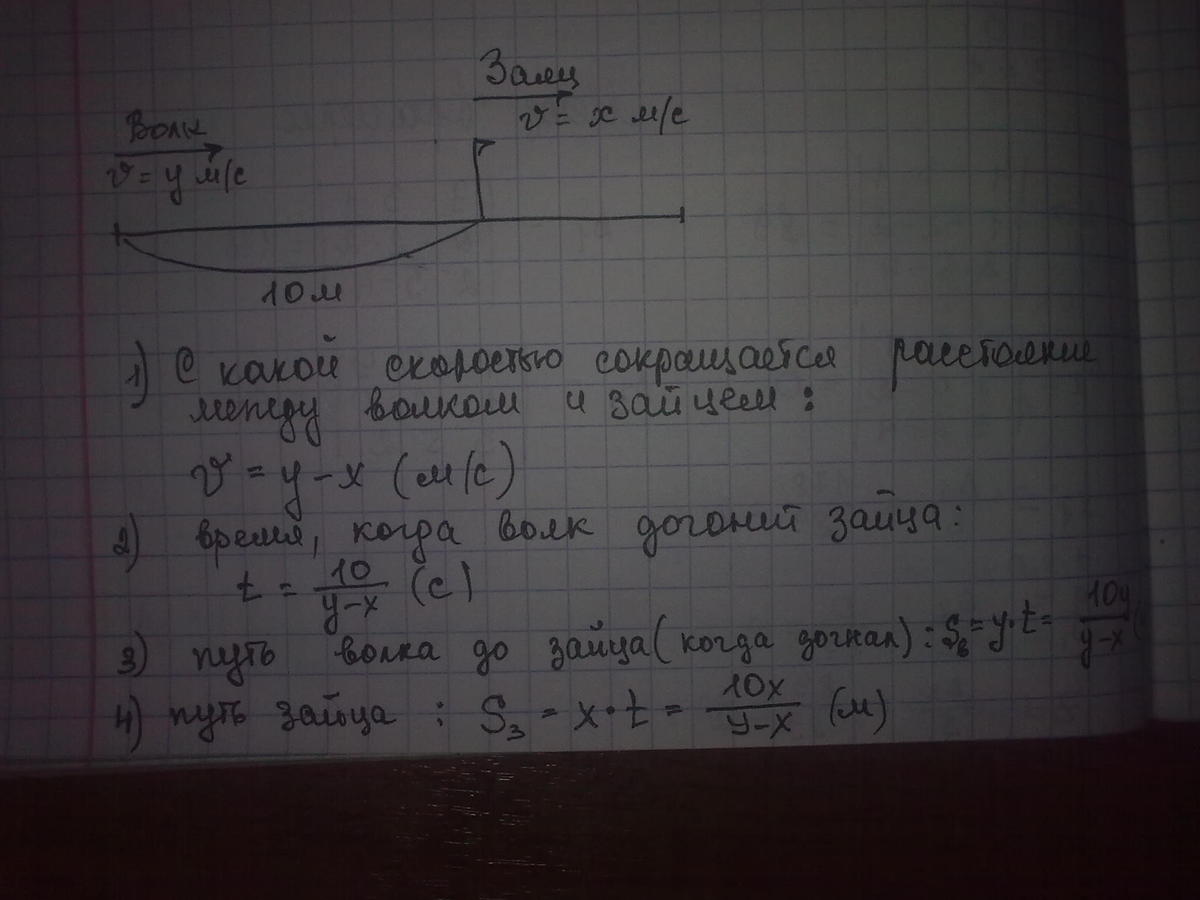 Заяц
v = x м/с
Волк
v = y м/с
10 м
1) С какой скоростью сокращается расстояние
между волком и зайцем :
v = y - x (м/с)
2) время, когда волк догонит зайца :
t = 10/(y-x) (с)
3) путь волка до зайца (когда догнал) : Sв = y·t = 10y/(y-x) (
4) путь зайца : Sз = x·t = 10x/(y-x) (м)